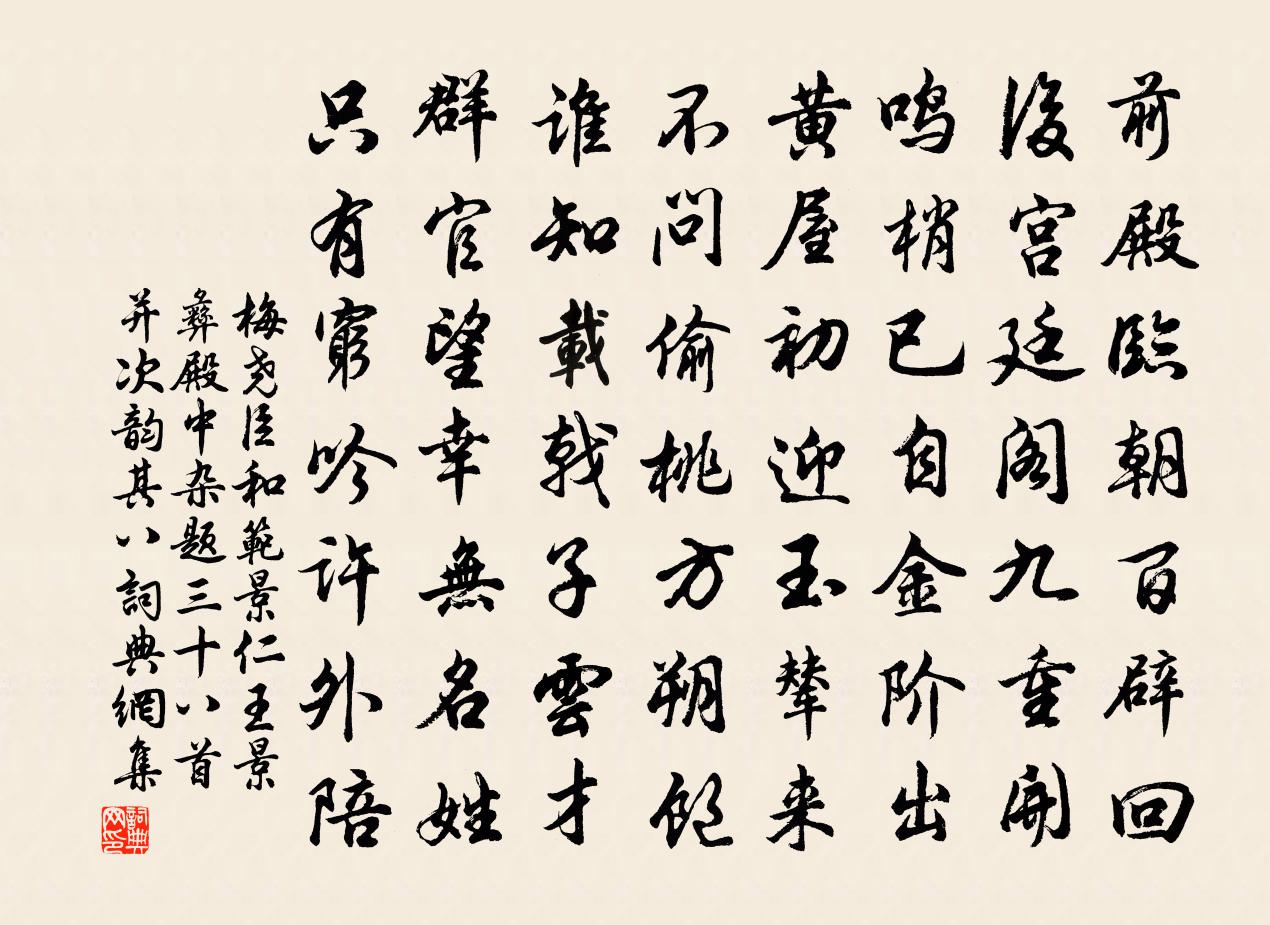 前殿臨朝百辟回
後宫廷阁九重開
鸣梢已自金阶出
黄屋初迎玉輦来
不問偷桃方朔飽
谁知載戟子雲才
群官望幸無名姓
只有窮吟许外陪
梅尧臣和範景仁王景
彝殿中杂题三十八首
并次韵其八詞典網集
詞典网印